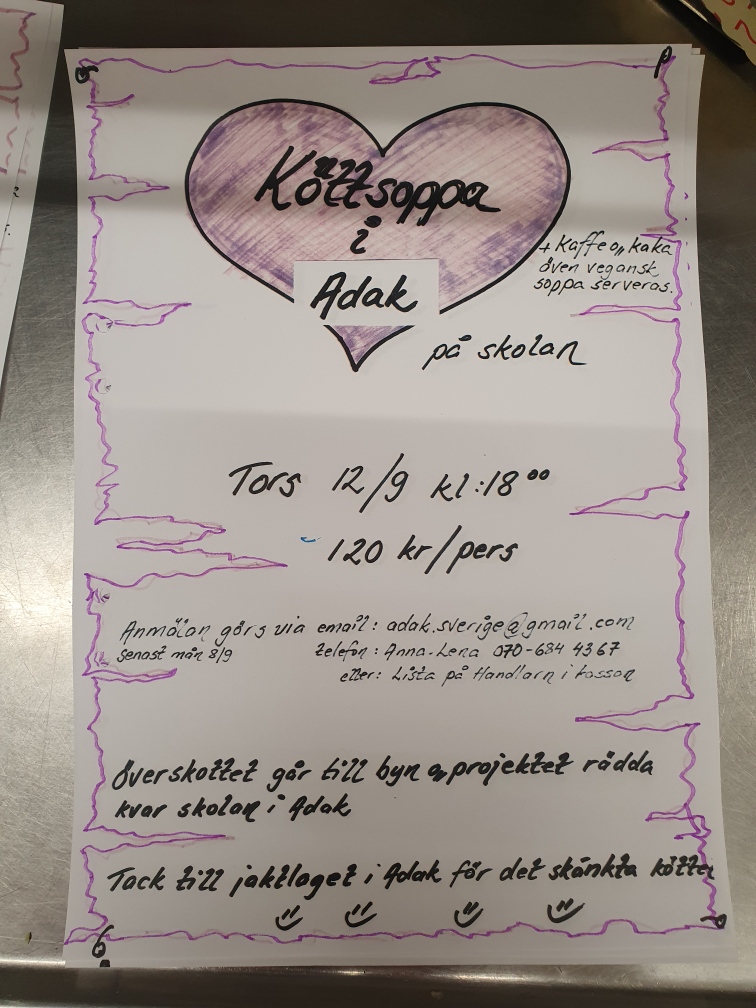 Köttsoppa
i
Adak
+ Kaffe o, kaka
även vegansk
soppa serveras.
på skolan
Tors 12/9 kl:18⁰⁰
120 kr/pers
Anmälan görs via email: adak.sverige@gmail.com
senast mån 8/9 telefon: Anna-Lena 070-684 43 67
eller: Lista på Handlarn i
Överskottet går till byn o, projektet rädda
kvar skolan i Adak
Tack till jaktlaget i Adak för det skänkta köttet